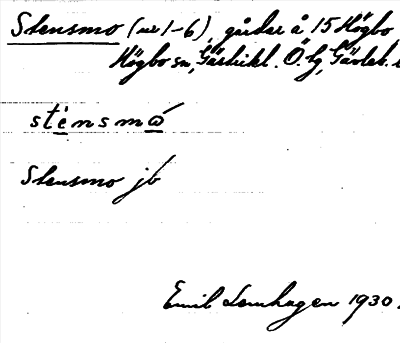 Stensmo (nr 1-6), gårdar å 15 Högbo
Högbo sn, Gästrikl. Ö. tg, Gävleb. l
sténsmó
Stensmo jb
Emil Lennhagen 1930.